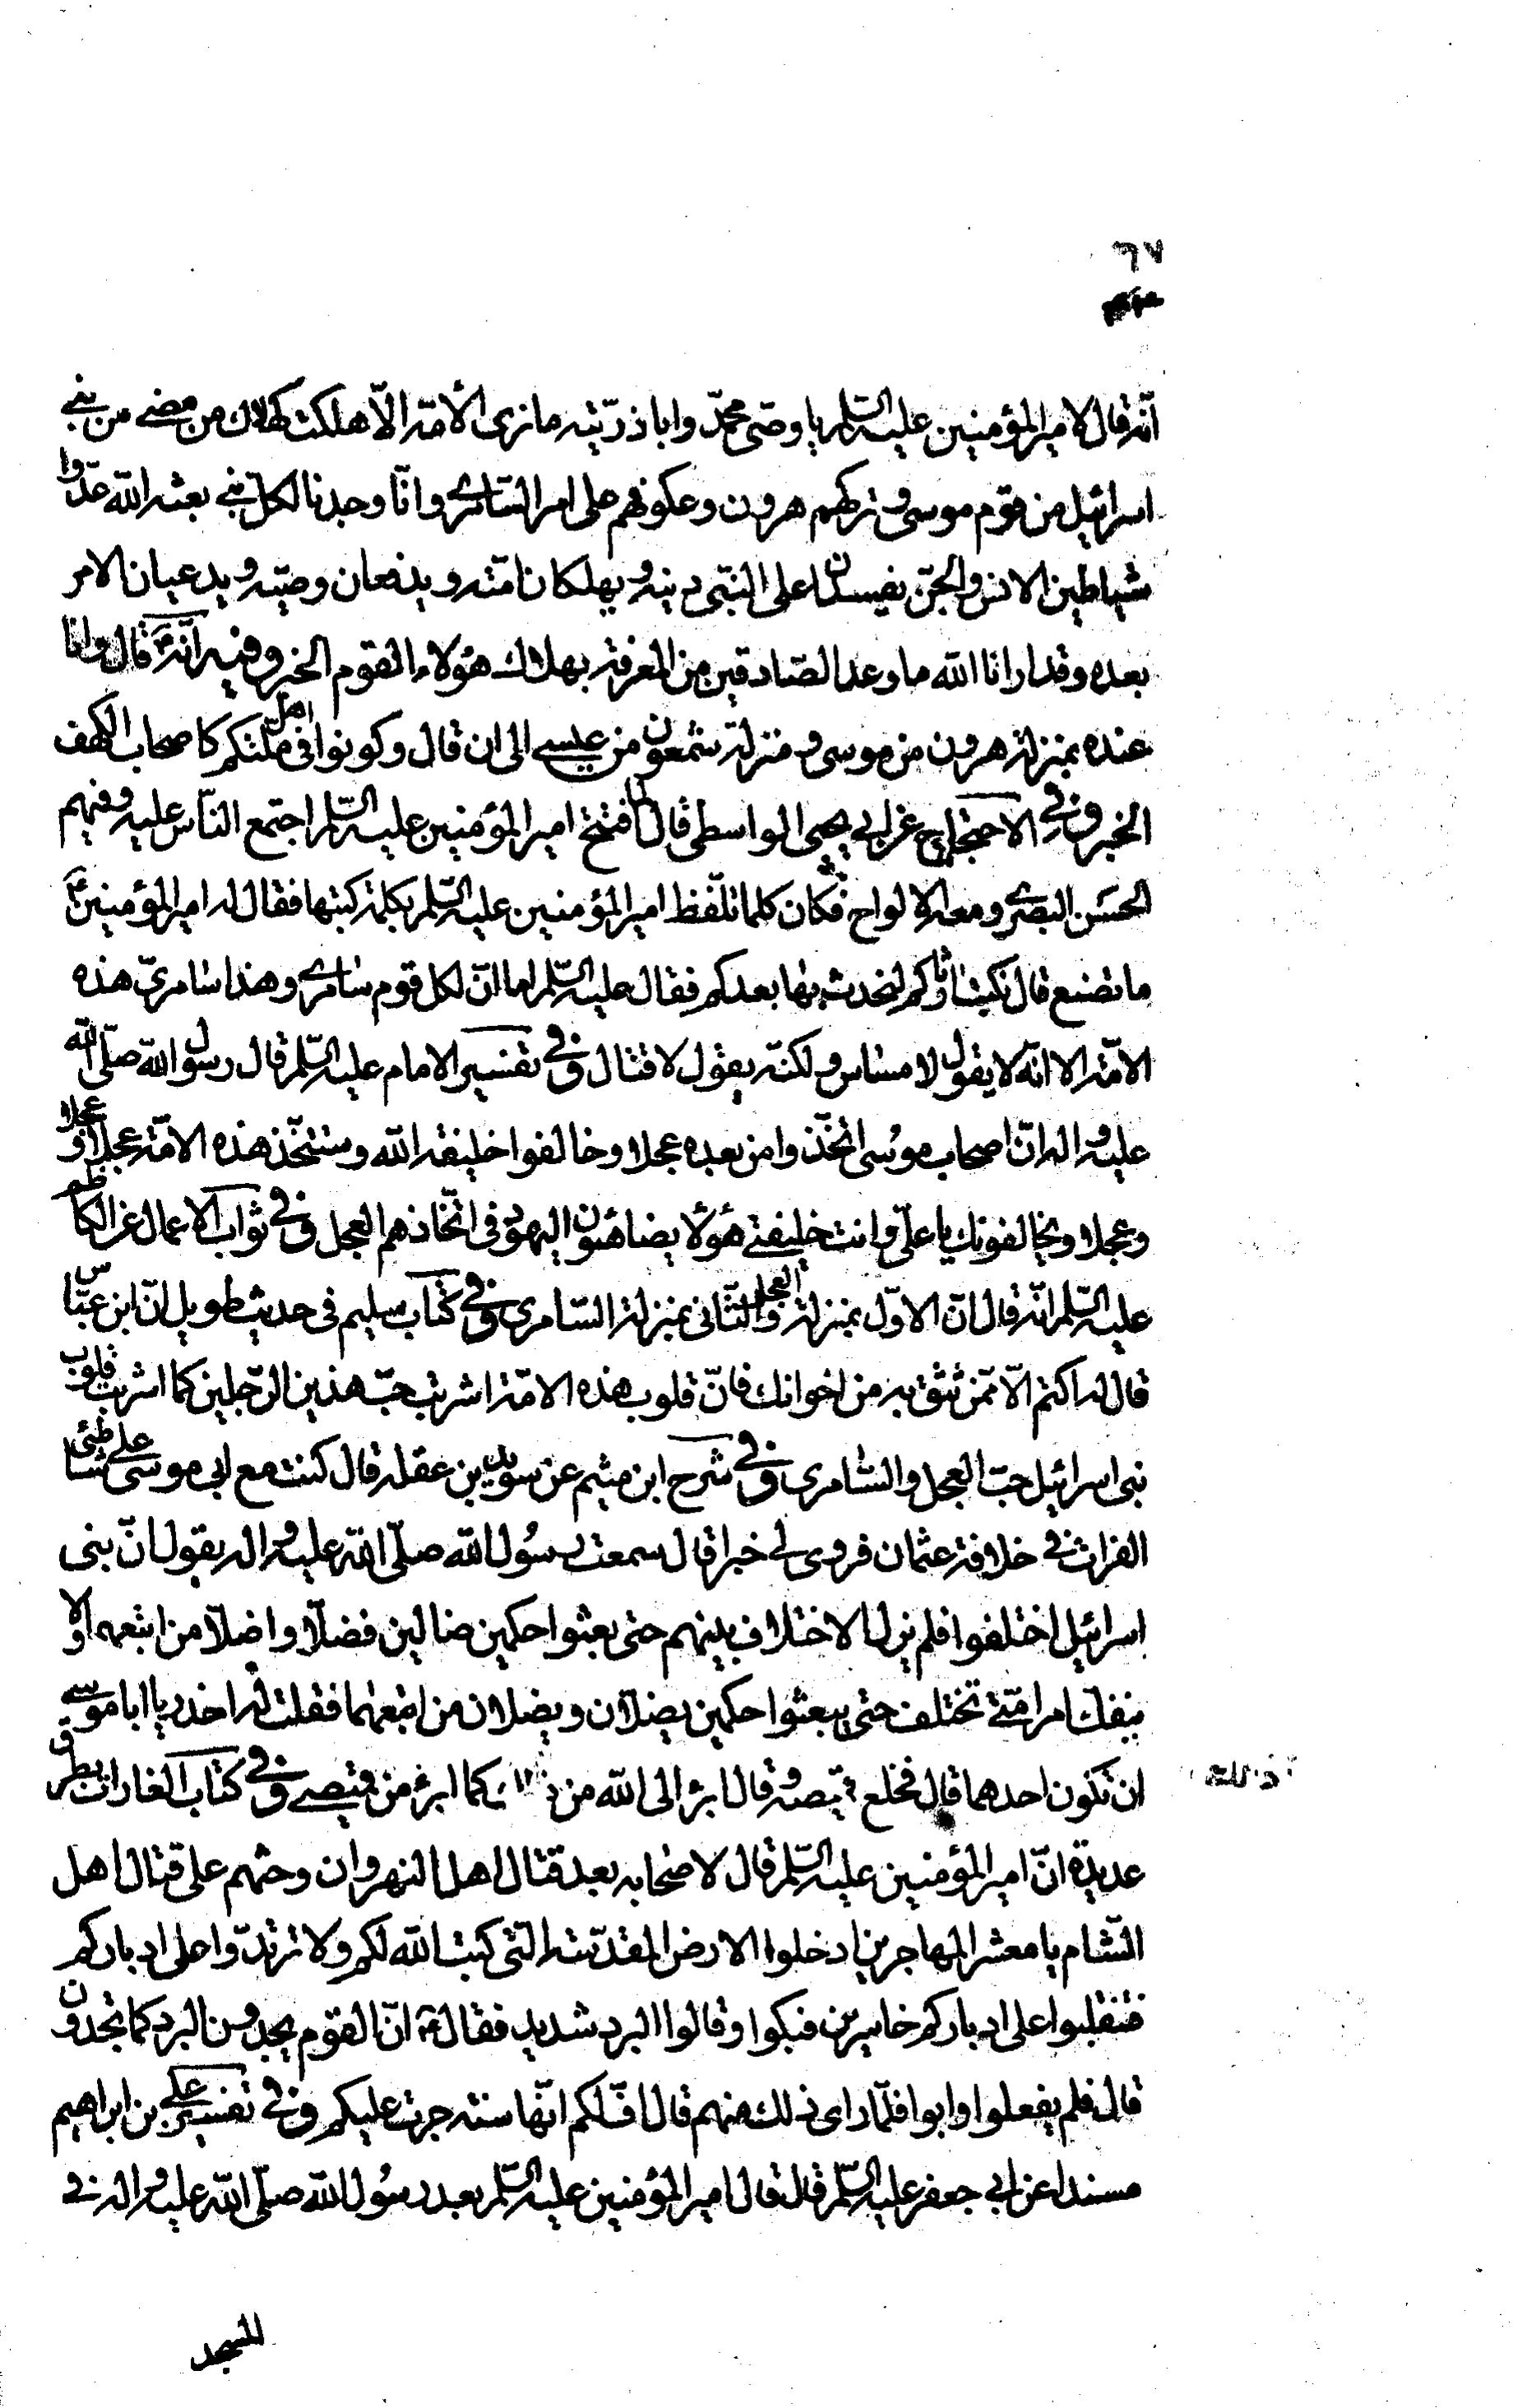 ٦٧
انّه قال لامير المؤمنين عليه السّلم يا وصىّ محمّد وابا ذرّيّته ما نرى الأمّة الّا هلكت كهلاك من مضى من بنى
اسرائيل من قوم موسى وتركهم هرون وعكوفهم على امر السّامرى وانّا وجدنا لكلّ نبى بعثه اللّه عدّوا
شياطين الانس والجنّ يفسدان على النّبى دينه ويهلكان امّته ويدفعان وصيّه ويدعيان الامر
بعده وقد ارانا اللّه ما وعد الصّادقين من المعرفة بهلاك هؤلاء القوم الخبر وفيه انّه قال وانا
عنده بمنزلة هرون من موسى ومنزلة شمعون من عيسى الى ان قال وكونوا فى اهل ملّتكم كاصحاب الكهف
الخبر وفى الاحتجاج عن ابى يحيى الواسطى قال لمّا افتتح امير المؤمنين عليه السّلم اجتمع النّاس عليه وفيهم
الحسن البصرى ومعه الالواح فكان كلما تلّفظ امير المؤمنين عليه السّلم بكلمة كتبها فقال له امير المؤمنين ع
ما تصنع قال نكتب اثاركم لنحدث بها بعدكم فقال عليه السّلم اما انّ لكل قوم سامرى وهذا سامرىّ هذه
الامّة الا انّه لا يقول لا مساس ولكنّه يقول لا قتال وفى تفسير الامام عليه السّلم قال رسول اللّه صلّى اللّه
عليه واله انّ اصحاب موسى اتخّذوا من بعده عجلا وخالفوا خليفة اللّه وستتخّذ هذه الامّة عجلا وعجلا
وعجلا ويخالفونك يا علىّ وانت خليفتى هؤلا يضاهئون اليهود فى اتّخاذهم العجل وفى ثواب الاعمال عن الكاظم
عليه السّلم انّه قال انّ الاوّل بمنزلة العجل والثّانى بمنزلة السّامرى وفى كتاب سليم فى حديث طويل انّ ابن عبّاس
قال له اكتم الّا ممّن تثق به من اخوانك فانّ قلوب هذه الامّة اشربت حبّ هذين الرّجلين كما اشربت قلوب
بنى اسرائيل حبّ العجل والسّامرى وفى شرح ابن ميثم عن سويد بن عقلة قال كنت مع ابى موسى على شاطئ
الفرات فى خلافة عثمان فروى لى خبرا قال سمعت رسول اللّه صلّى اللّه عليه واله يقول انّ بنى
اسرائيل اختلفوا فلم يزل الاختلاف بينهم حتى بعثوا حكمين ضالين فضلّا واضلّا من اتبعهما ولا
ينفك امر امّتى تختلف حتى يبعثوا حكمين يضلّان ويضلان من اتبعهما فقلت له احذر يا ابا موسى
ان تكون احدهما قال فخلع قميصه وقال ابرء الى اللّه من كما ابرء من قميصى وفى كتاب الغارات بطرق
ذلك
عديدة انّ امير المؤمنين عليه السّلم قال لاصحابه بعد قتال اهل النهروان وحثهم على قتال اهل
الشّام يا معشر المهاجرين ادخلوا الارض المقدّسة التى كتب اللّه لكم ولا ترتدّوا على ادباركم
فتنقلبوا على ادباركم خاسرين فبكوا وقالوا البرد شديد فقال ع انّ القوم يجدون البرد كما تجدون
قال فلم يفعلوا وابوا فلمّا راى ذلك منهم قال افّ لكم انّها سنة جرت عليكم وفى تفسير على بن ابراهيم
مسندا عن ابى جعفر عليه السّلم قال قال امير المؤمنين عليه السّلم بعد رسول اللّه صلّى اللّه عليه واله فى
المسجد